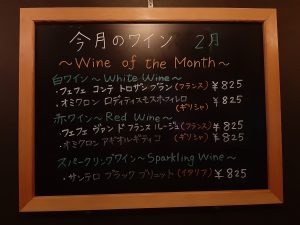 今月のワイン 2月
～Wine of the Month～
白ワイン～White Wine～
・フェフェ コンテ トロザン ブラン(フランス) ¥825
・オミクロン ロディティスモスホフィレロ
(ギリシャ) ¥825
赤ワイン～Red Wine～
・フェフェ ヴァン ド フランス ルージュ(フランス) ¥825
・オミクロン アギオルギティコ (ギリシャ) ¥825
スパークリングワイン～Sparkling Wine～
・サンテロ ブラック ブリュット(イタリア) ¥825